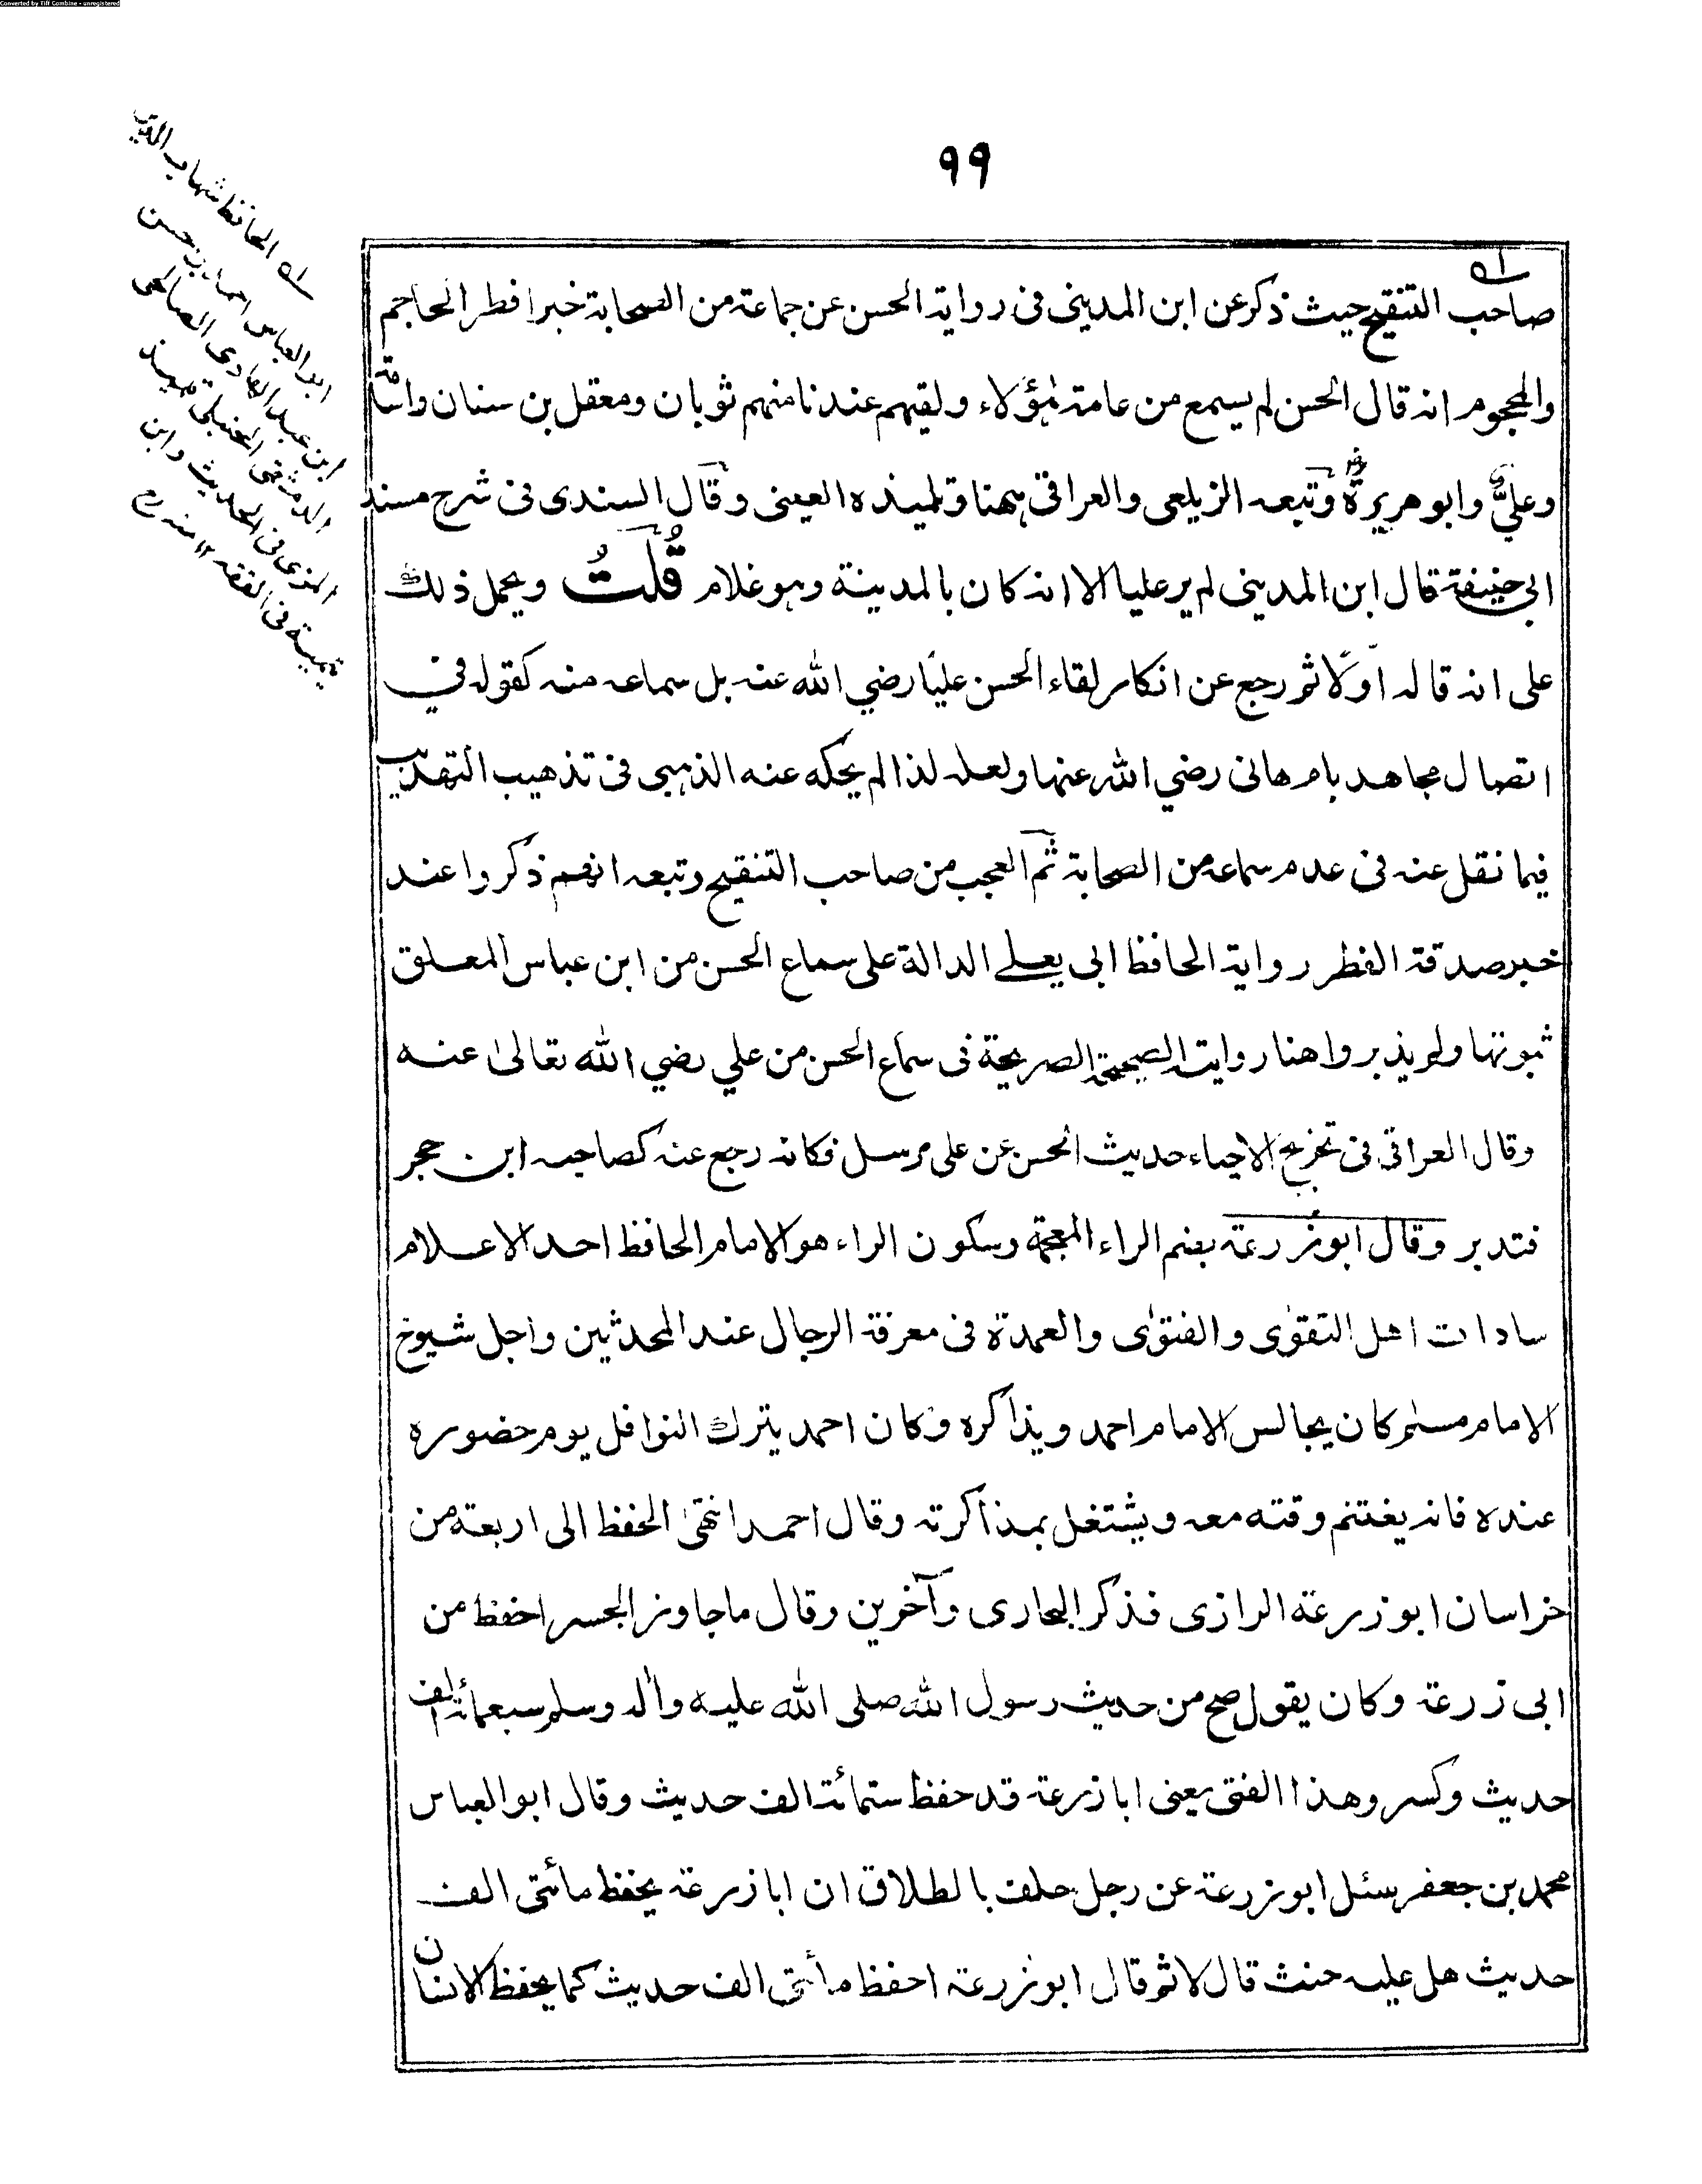 Converted by Tiff Combine - unregistered
٩٩
له
صاحب التنقيح حيث ذكر عن ابن المديني في رواية الحسن عن جماعة من الصحابة خبر افطر الحاجم
والمحجوم انه قال الحسن لم يسمع من عامة هؤلاء ولقيهم عندنا منهم ثوبان ومعقل بن سنان واسامة
وعليؓ وابو هريرةؓ وتبعه الزيلعي والعراقي ههنا وتلميذه العيني وقال السندي في شرح مسند
ابي حنيفة قال ابن المديني لم ير عليا الا انه كان بالمدينة وهو غلام قُلتُ ويحمل ذلك
على انه قاله اوّلًا ثم رجع عن انكار لقاء الحسن عليّا رضي الله عنه بل سماعه منه كقوله في
اتصال مجاهد بام هانى رضي الله عنها ولعله لذا لم يحكه عنه الذهبي في تذهيب التهذيب
فيما نقل عنه في عدم سماعه من الصحابة ثم العجب من صاحب التنقيح وتبعه انهم ذكروا عند
خبر صدقة الفطر رواية الحافظ ابى يعلى الدالة على سماع الحسن من ابن عباس المعلق
ثبوتها ولم يذبروا هنا روايته الصحيحة الصريحة في سماع الحسن من علي رضي الله تعالىٰ عنه
وقال العراقي في تخريج الاحياء حديث الحسن عن على مرسل فكانه رجع عنه كصاحبه ابن حجر
فتدبر وقال ابو زرعة بضم الراء المعجمة وسكون الراء هو الامام الحافظ احد الاعلام
سادات اهل التقوٰى والفتوٰى والعمدة في معرفة الرجال عند المحدثين واجل شيوخ
الامام مسلم كان يجالس الامام احمد ويذاكره وكان احمد يترك النوافل يوم حضوره
عنده فانه يغتنم وقته معه ويشتغل بمذاكرته وقال احمد انتهىٰ الحفظ الى اربعة من
خراسان ابو زرعة الرازى فذكر البخارى وآخرين وقال ما جاوز الجسر احفظ من
ابى زرعة وكان يقول صح من حديث رسول الله صلى الله عليه واٰله وسلم سبعمائة الف
حديث وكسر وهذا الفتى يعنى ابا زرعة قد حفظ ستمائة الف حديث وقال ابو العباس
محمد بن جعفر سئل ابو زرعة عن رجل حلف بالطلاق ان ابا زرعة يحفظ مائتى الف
حديث هل عليه حنث قال لا ثم قال ابو زرعة احفظ مأتى الف حديث كما يحفظ الانسان
له الحافظ شهاب الدين
ابو العباس احمد بن حسن
ابن عبد الهادى الصالحى
الدمشقى الحنبلى تلميذ
المزى في الحديث وابن
تيمية في الفقه ١٢ منه رح